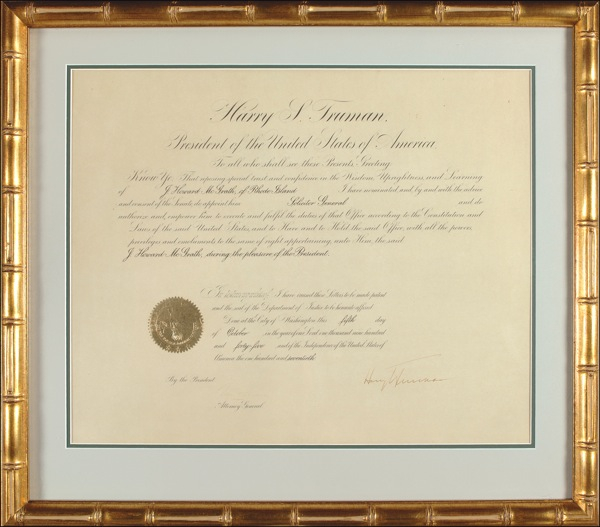 Harry S. Truman,
President of the United States of America,
To all who shall see these Presents, Greeting:
Know Ye; That reposing special trust and confidence in the Wisdom, Uprightness, and Learning
of J. Howard Mc Grath, of Rhode Island I have nominated, and, by and with the advice
and consent of the Senate, do appoint him Solicitor General and do
authorize and empower him to execute and fulfil the duties of that Office according to the Constitution and
Laws of the said United States, and to Have and to Hold the said Office, with all the powers,
privileges and emoluments to the same of right appertaining, unto Him, the said
J. Howard Mc Grath, during the pleasure of the President.
In testimony whereof, I have caused these Letters to be made patent
and the seal of the Department of Justice to be hereunto affixed.
Done at the City of Washington this fifth day
of October in the year of our Lord one thousand nine hundred
and forty-five and of the Independence of the United States of
America the one hundred and seventieth.
By the President:
Harry S Truman
Attorney General.